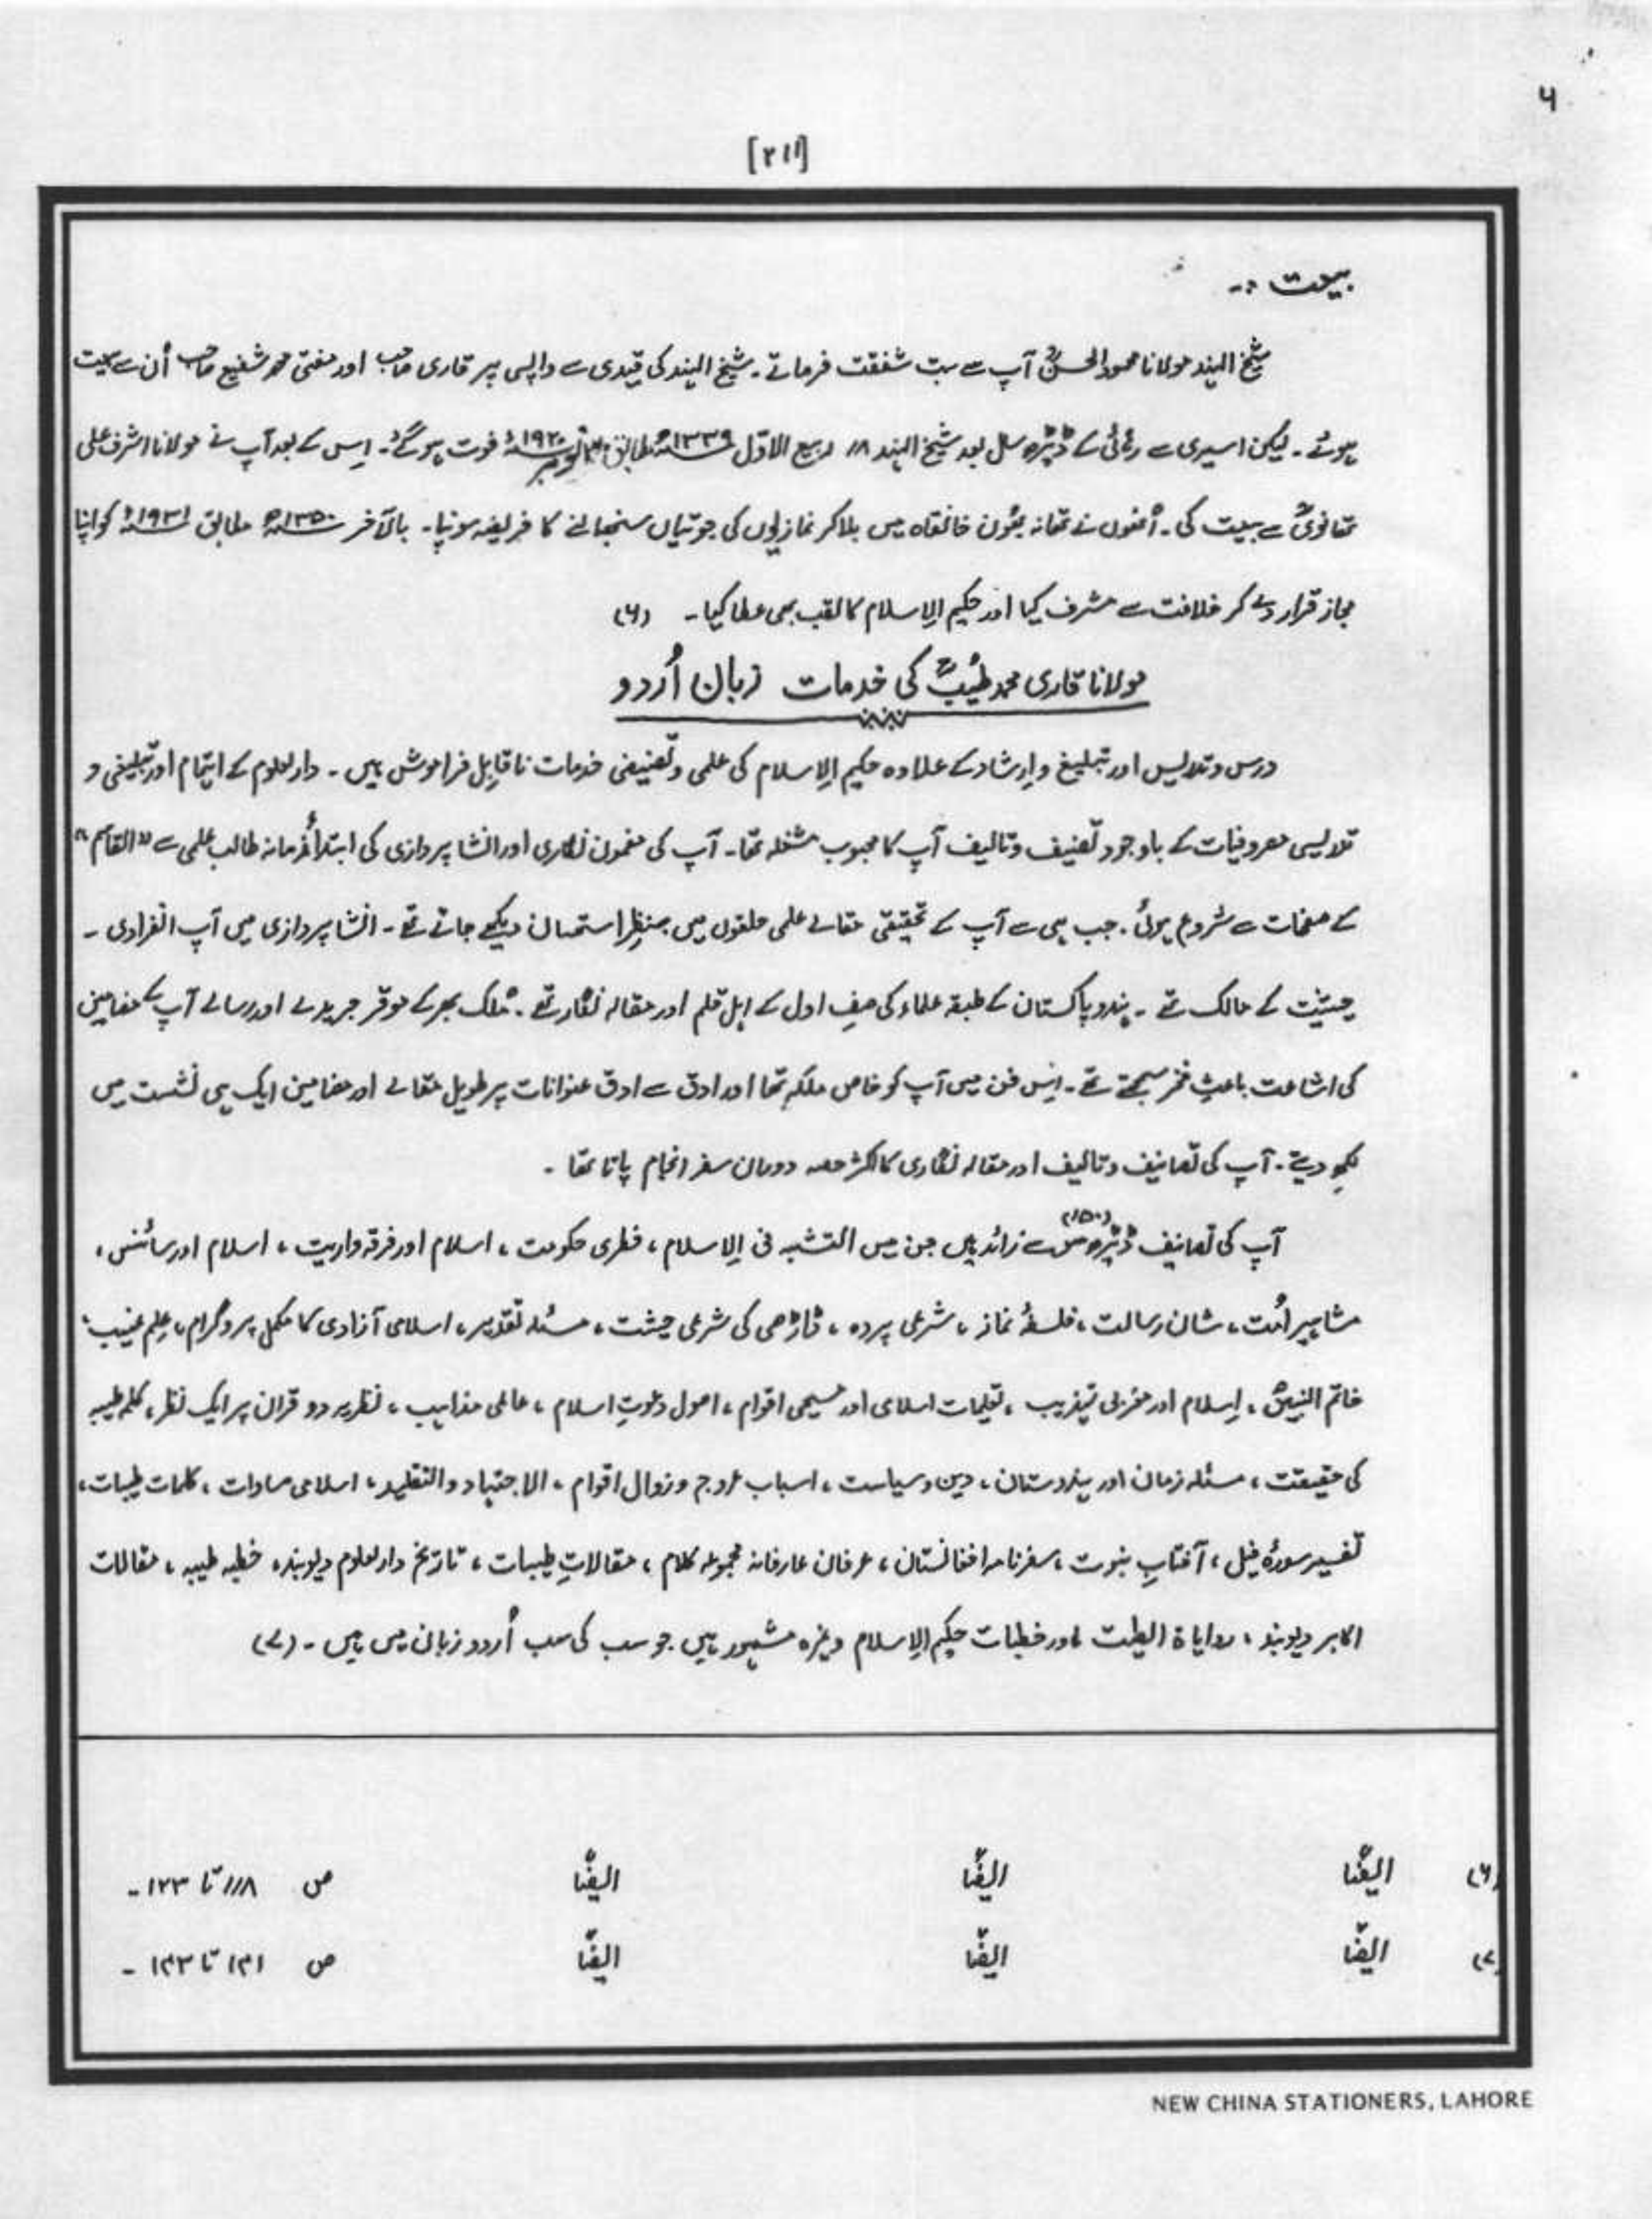 ۶
[۲۱۱]
بیعت :-
شیخ الہند مولانا محمود الحسنؒ آپ سے بہت شفقت فرماتے۔ شیخ الہند کی قیدی سے واپسی پر قاری صاحب اور مفتی محمد شفیع صاحب اُن سے بیعت
ہوئے۔ لیکن اسیری سے رہائی کے ڈیڑھ سال بعد شیخ الہند ۱۸ ربیع الاوّل ۱۳۳۹ھ مطابق نومبر ۱۹۲۰ء فوت ہو گئے۔ اِس کے بعد آپ نے مولانا اشرف علی
تھانویؒ سے بیعت کی۔ اُنھوں نے تھانہ بھون خانقاہ میں بلا کر نمازیوں کی جوتیاں سنبھالنے کا فریضہ سونپا۔ بالآخر ۱۳۵۰ھ مطابق ۱۹۳۱ء کو اپنا
مجاز قرار دے کر خلافت سے مشرف کیا اور حکیم الاِسلام کا لقب بھی عطا کیا۔ (۶)
مولانا قاری محمد طیّبؒ کی خدمات زبان اُردو
درس و تدریس اور تبلیغ و اِرشاد کے علاوہ حکیم الاِسلام کی علمی و تصنیفی خدمات ناقابِل فراموش ہیں۔ دارلعلوم کے اہتمام اور تبلیغی و
تدریسی مصروفیات کے باوجود تصنیف و تالیف آپ کا محبوب مشغلہ تھا۔ آپ کی مضمون نگاری اور انشا پردازی کی ابتدأ زمانہ طالب علمی سے "القاسم"
کے صفحات سے شروع ہوئی۔ جب ہی سے آپ کے تحقیقی مقالے علمی حلقوں میں بنظرِ استحسان دیکھے جاتے تھے۔ انشا پردازی میں آپ انفرادی ۔
حیثیت کے مالک تھے۔ ہند و پاکستان کے طبقہ علماء کی صفِ اول کے اہل قلم اور مقالہ نگار تھے۔ مُلک بھر کے موقر جریدے اور رسالے آپ کے مضامین
کی اشاعت باعثِ فخر سمجھتے تھے۔ اِس فن میں آپ کو خاص ملکہ تھا اور ادق سے ادق عنوانات پر طویل مقالے اور مضامین ایک ہی نشست میں
لکھ دیتے۔ آپ کی تصانیف و تالیف اور مقالہ نگاری کا اکثر حصہ دوران سفر انجام پاتا تھا ۔
آپ کی تصانیف ڈیڑھ سو (۱۵۰) سے زائد ہیں جن میں التشبہ فی الاِسلام ، فطری حکومت ، اسلام اور فرقہ واریت ، اسلام اور سائنس ،
مشاہیر اُمت ، شان رسالت ، فلسفۂ نماز ، شرعی پردہ ، ڈاڑھی کی شرعی حیثت ، مسئلہ تقدیر ، اسلامی آزادی کا مکمل پروگرام ، عِلم غیب ،
خاتم النبیّنؐ ، اِسلام اور مغربی تہذیب ، تعلیمات اسلامی اور مسیحی اقوام ، اصول دعوتِ اسلام ، عالمی مذاہب ، نظریہ دو قران پر ایک نظر ، کلمہ طیبہ
کی حقیقت ، مسئلہ زمان اور ہندوستان ، دین و سیاست ، اسباب عروج و زوال اقوام ، الاجتہاد والتقلید ، اسلامی مساوات ، کلمات طیبات ،
تفسیر سورۂ فیل ، آفتابِ نبوت ، سفرنامہ افغانستان ، عرفان عارفانہ مجموعہ کلام ، مقالاتِ طیبات ، تاریخ دارلعلوم دیوبند ، خطبہ طیبہ ، مقالات
اکابر دیوبند ، روایاۃ الطیت اور خطبات حکیم الاِسلام وغیرہ مشہور ہیں جو سب کی سب اُردو زبان میں ہیں ۔ (۷)
(۶) ایضًا ایضًا ایضًا ص ۱۱۸ تا ۱۲۳ ۔
(۷) ایضًا ایضًا ایضًا ص ۱۳۱ تا ۱۳۳ ۔
NEW CHINA STATIONERS, LAHORE